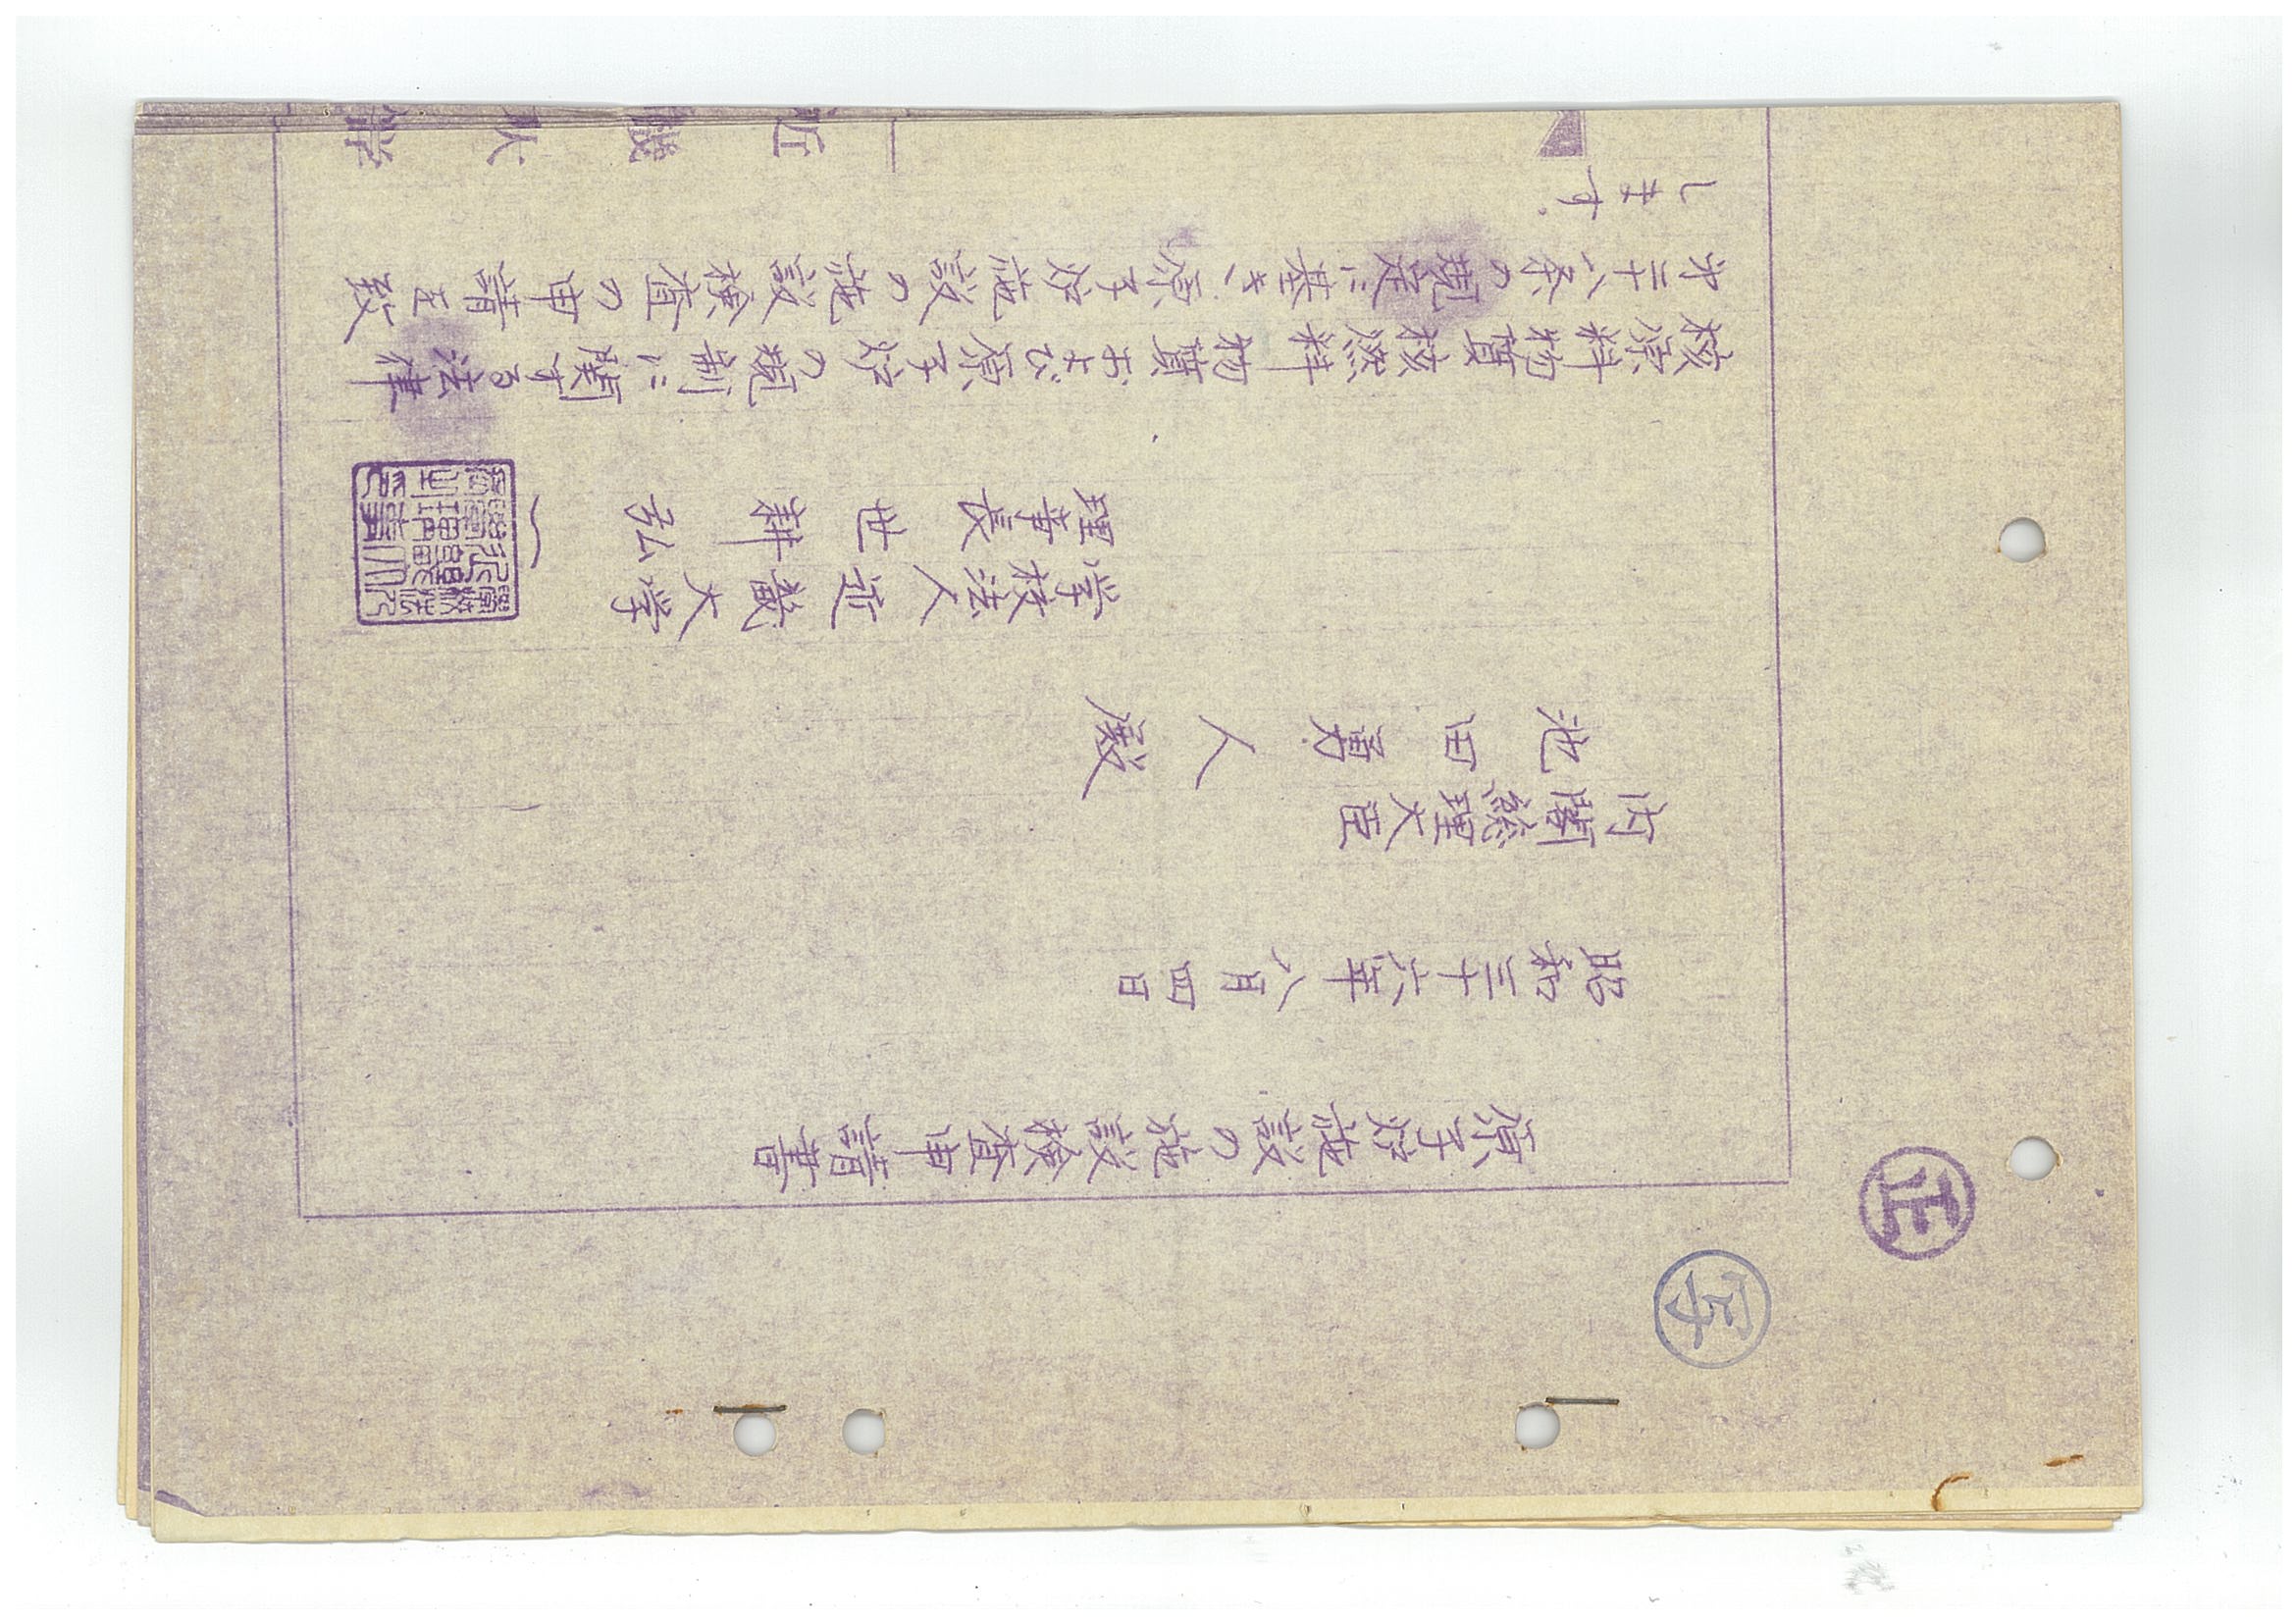 正
原子炉施設の施設検査申請書
昭和三十六年八月四日
内閣総理大臣
池田勇人殿
学校法人近畿大学
理事長 世耕弘一
核原料物質核燃料物質および原子炉の規制に関する法律
才二十八条の規定に基き、原子炉施設の施設検査の申請を致
します.
近畿大学